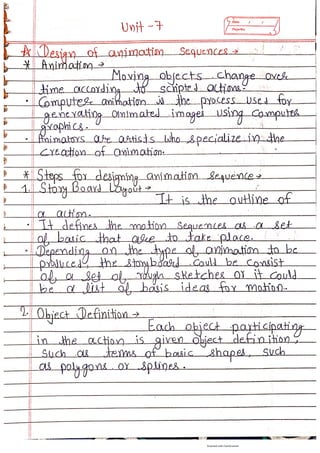 Unit - 7
A Design of animation sequences →
* Animation →
Moving objects change over
time according to scripted actions.
• Computer animation is the process used for
generating animated images using computer
graphics.
• Animators are artists who specialize in the
creation of animation.
* Steps for designing animation sequence →
1. Story Board Layout →
It is the outline of
a action.
• It defines the motion sequences as a set
of basic that are to take place.
• Depending on the type of animation to be
produced the storyboard could be consist
of a set of rough sketches or it could
be a list of basis ideas for motion.
2. Object Definition →
Each object participating
in the action is given object definition,
such as terms of basic shapes, such
as polygons or splines.